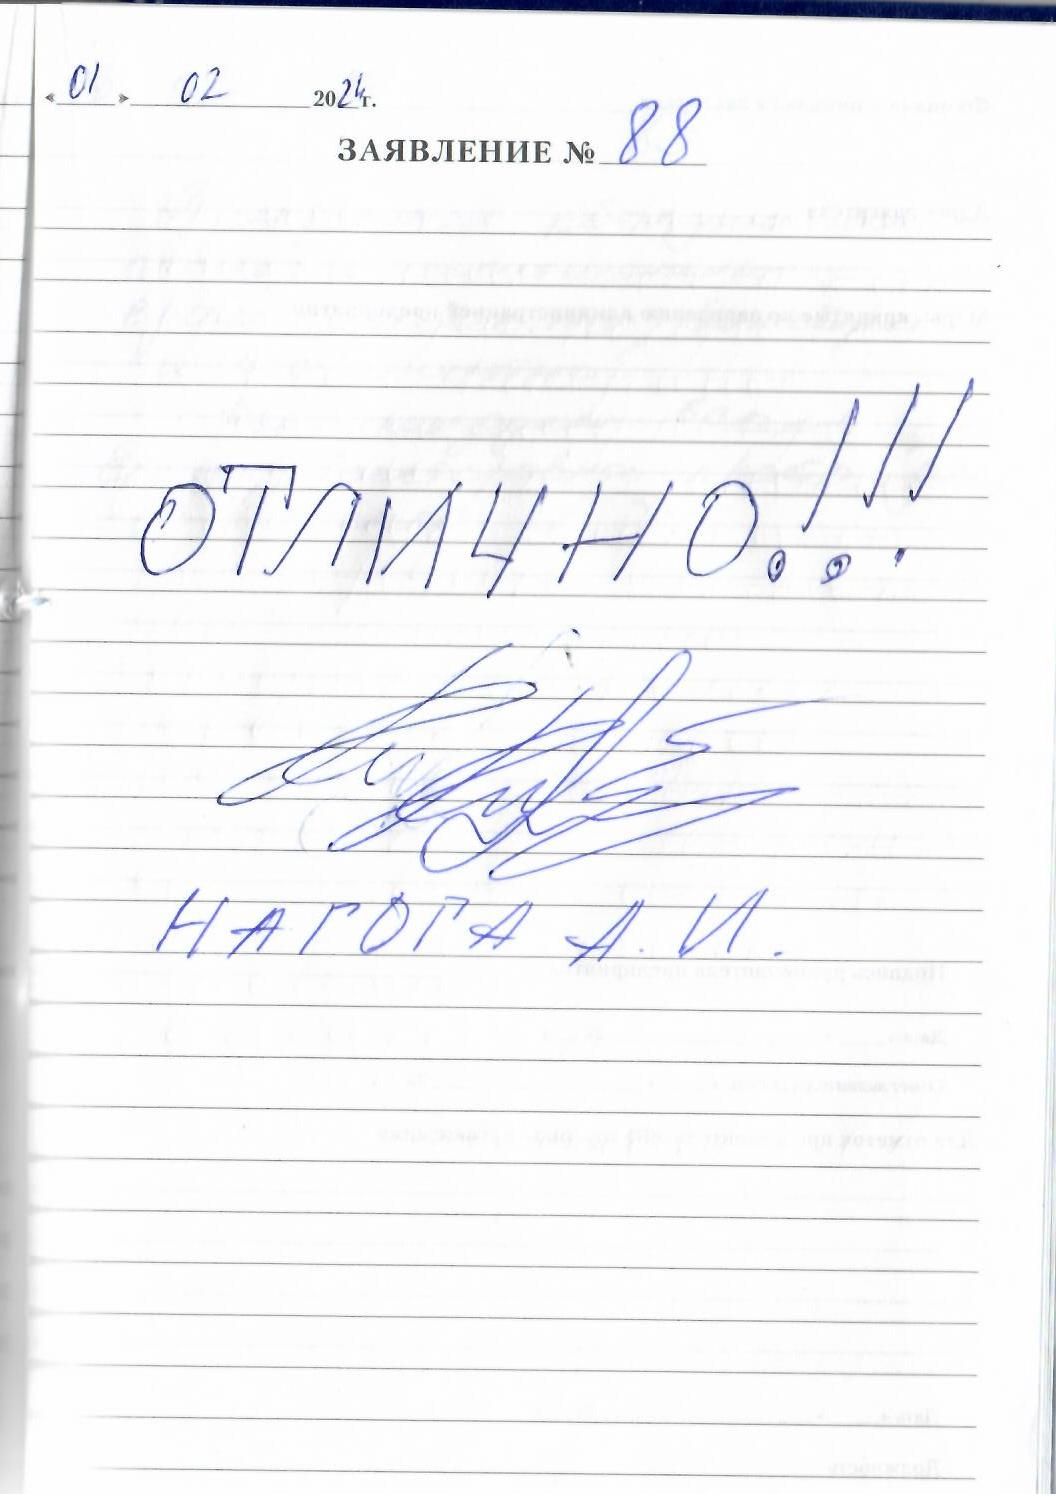 «01» 02 2024г.
ЗАЯВЛЕНИЕ № 88
ОТЛИЧНО!!!
НАГОГА А.И.